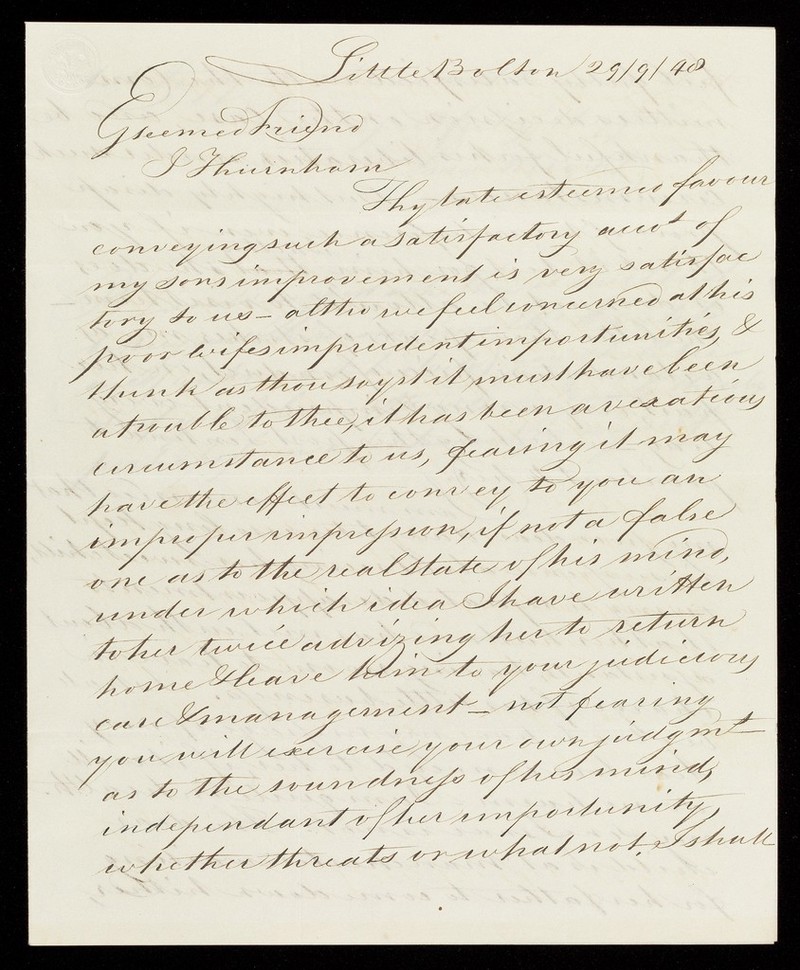 Little Bolton 29/9/48
Esteemed Friend
J Thurnham
Thy late esteemed favour
conveying such a satisfactory acco^t of
my sons improvement is very satisfac
tory to us – altho we feel concerned at his
poor wifes imprudent importunities, &
think as thou sayst it must have been
a trouble to thee, it has been a vexatious
circumstance to us, fearing it may
have the effect to convey to you an
improper impression, if not a false
one as to the real state of his mind,
under which idea I have written
to her twice advizing her to return
home & leave him to your judicious
care & management – not fearing
you will exercise your own judgm^t
as to the soundness of his mind,
independant of her importunity,
whether threats or what not. I shall